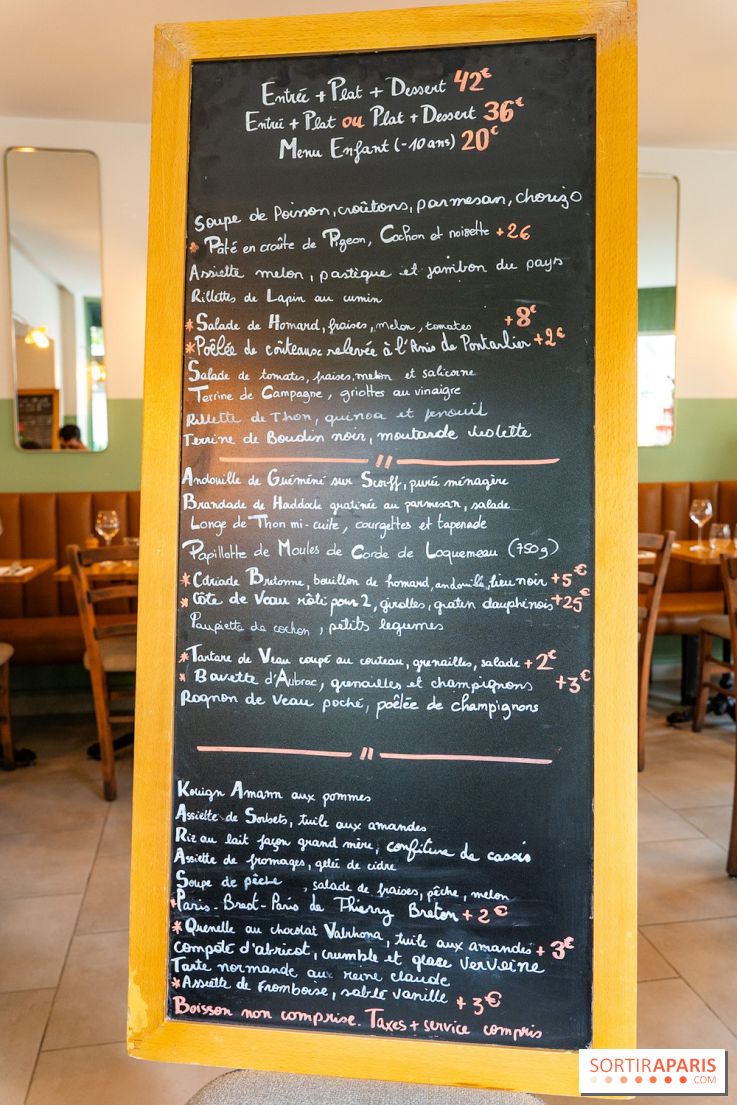 Entrée + Plat + Dessert 42€
Entrée + Plat ou Plat + Dessert 36€
Menu Enfant (-10 ans) 20€
Soupe de Poisson, croûtons, parmesan, chorizo
* Pâté en croûte de Pigeon, Cochon et noisette +2€
Assiette melon, pastèque et jambon du pays
Rillettes de Lapin au cumin
* Salade de Homard, fraises, melon, tomates +8€
* Poêlée de couteaux relevée à l'Anis de Pontarlier +2€
Salade de tomates, fraises, melon et salicorne
Terrine de Campagne, griottes au vinaigre
Rillette de Thon, quinoa et fenouil
Terrine de Boudin noir, moutarde violette
//
Andouille de Guéméné sur Scorff, purée ménagère
Brandade de Haddock gratinée au parmesan, salade
Longe de Thon mi-cuite, courgettes et tapenade
Papillotte de Moules de Corde de Loquemeau (750g)
* Cotriade Bretonne, bouillon de homard, andouille, lieu noir +5€
* Côte de Veau rôti pour 2, girolles, gratin dauphinois +25€
Paupiette de cochon, petits legumes
* Tartare de Veau coupé au couteau, grenailles, salade +2€
* Bavette d'Aubrac, grenailles et champignons +3€
Rognon de veau poché, poêlée de champignons
//
Kouign Amann aux pommes
Assiette de Sorbets, tuile aux amandes
Riz au lait façon grand mère, confiture de cassis
Assiette de fromages, gelée de cidre
Soupe de pêche, salade de fraises, pêche, melon
* Paris-Brest-Paris de Thierry Breton + 2€
* Quenelle au chocolat Valrhona, tuile aux amandes + 3€
compote d'abricot, crumble et glace verveine
Tarte normande aux reine claude
* Assiette de Framboise, sablé vanille + 3€
Boisson non comprise. Taxes + service compris
SORTIRAPARIS
.COM